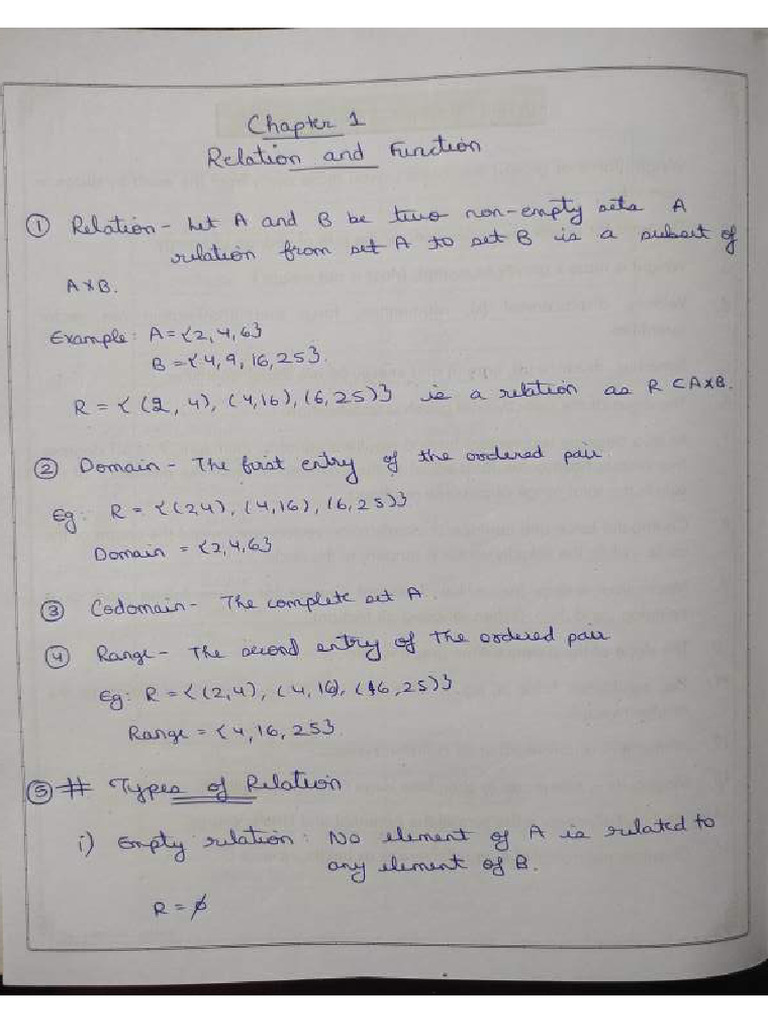 Chapter 1
Relation and Function
① Relation - Let A and B be two non-empty sets A
relation from set A to set B is a subset of
A×B.
Example: A={2,4,6}
B={4,9,16,25}.
R = {(2,4), (4,16), (6,25)} is a relation as R⊂A×B.
② Domain - The first entry of the ordered pair.
Eg: R = {(2,4), (4,16), (6,25)}
Domain = {2,4,6}
③ Codomain - The complete set A.
④ Range - The second entry of the ordered pair
Eg: R = {(2,4), (4,16), (6,25)}
Range = {4,16,25}.
⑤ # Types of Relation
i) Empty relation: No element of A is related to
any element of B.
R = ϕ